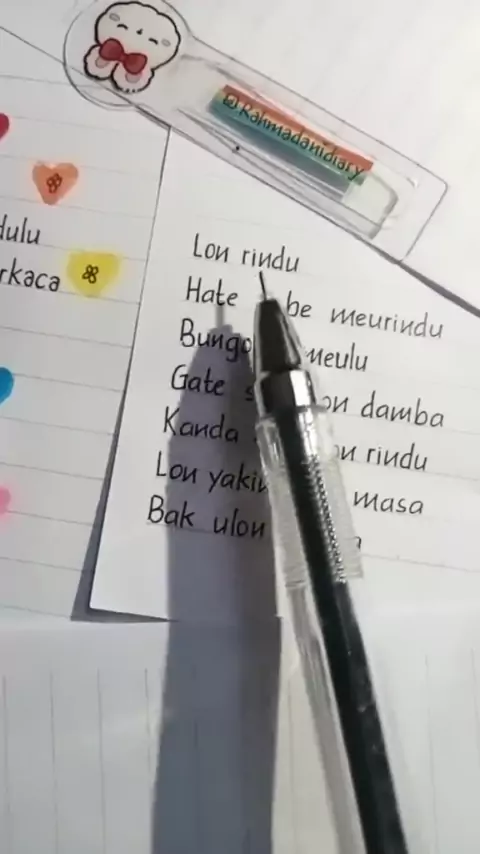 @Rahmadanidiary
dulu
rkaca
Lon rindu
Hate be meurindu
Bungo meulu
Gate s on damba
Kanda on rindu
Lon yakin masa
Bak ulon a